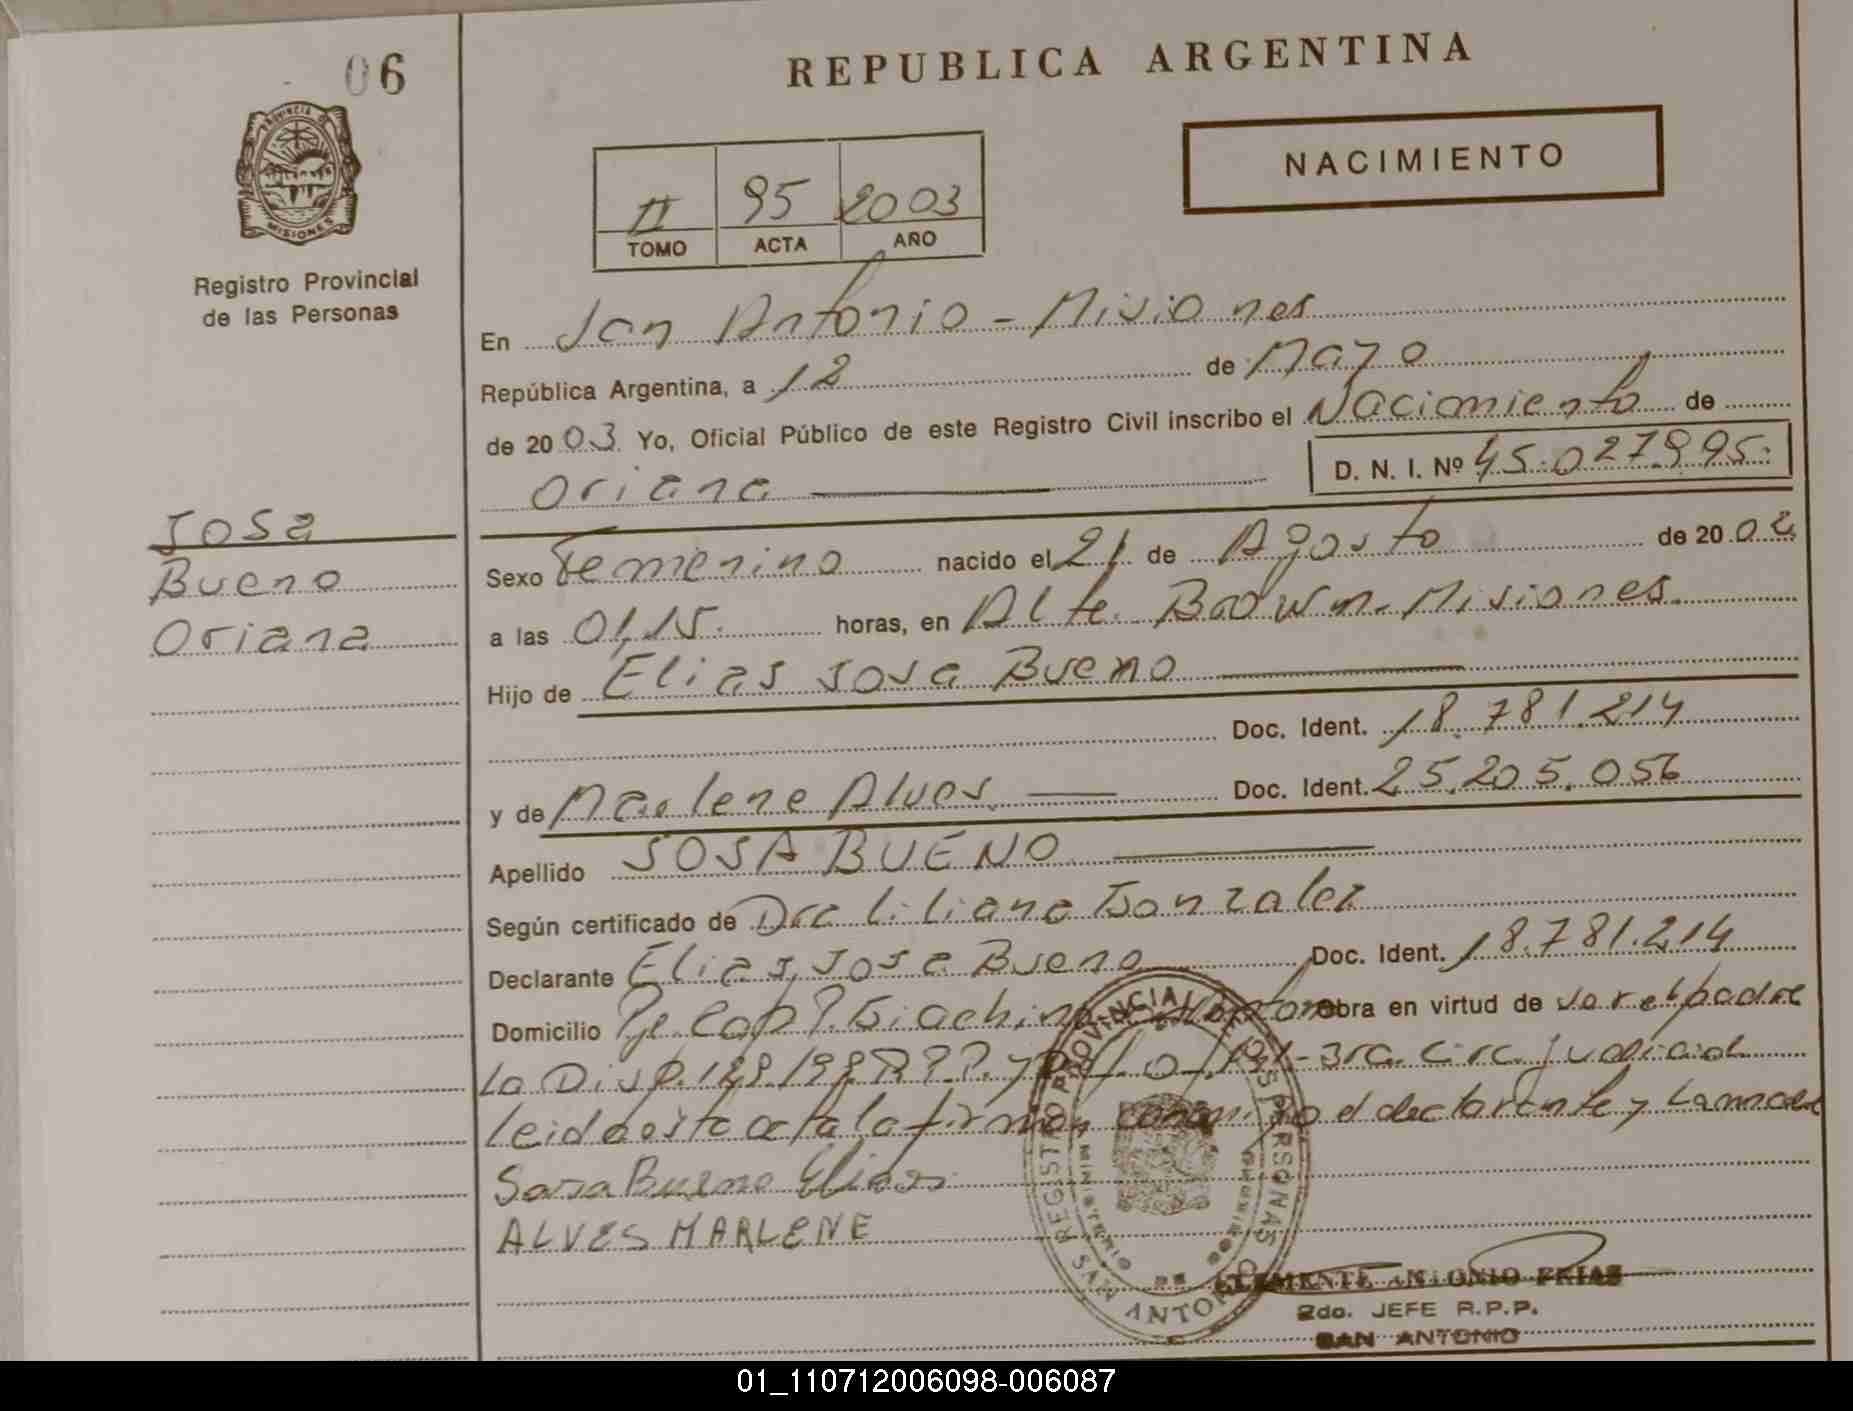 06
REPUBLICA ARGENTINA
PROVINCIA DE
MISIONES
Registro Provincial
de las Personas
II 95 2003
TOMO ACTA AÑO
NACIMIENTO
En San Antonio - Misiones
República Argentina, a 12 de Mayo
de 2003 Yo, Oficial Público de este Registro Civil inscribo el Nacimiento de
Oriana
D. N. I. Nº 45.027.995.
Sosa
Bueno
Oriana
Sexo Femenino nacido el 21 de Agosto de 2002
a las 01,15. horas, en Alte. Brown. Misiones.
Hijo de Elias Sosa Bueno
Doc. Ident. 18.781.214
y de Marlene Alves. Doc. Ident. 25.205.056
Apellido SOSA BUENO
Según certificado de Dra Liliana Gonzalez
Declarante Elias, Sosa Bueno Doc. Ident. 18.781.214
Domicilio Cap. Giachino Obra en virtud de ser el padre
La Disp. 3ra. Circ. Judicial
Leida esta acta la firman conmigo el declarante y la madre
Sosa Bueno Elias
ALVES MARLENE
REGISTRO PROVINCIAL DE LAS PERSONAS
MINISTERIO DE GOBIERNO
SAN ANTONIO
CLEMENTE ANTONIO FRIAS
2do. JEFE R.P.P.
SAN ANTONIO
01_110712006098-006087